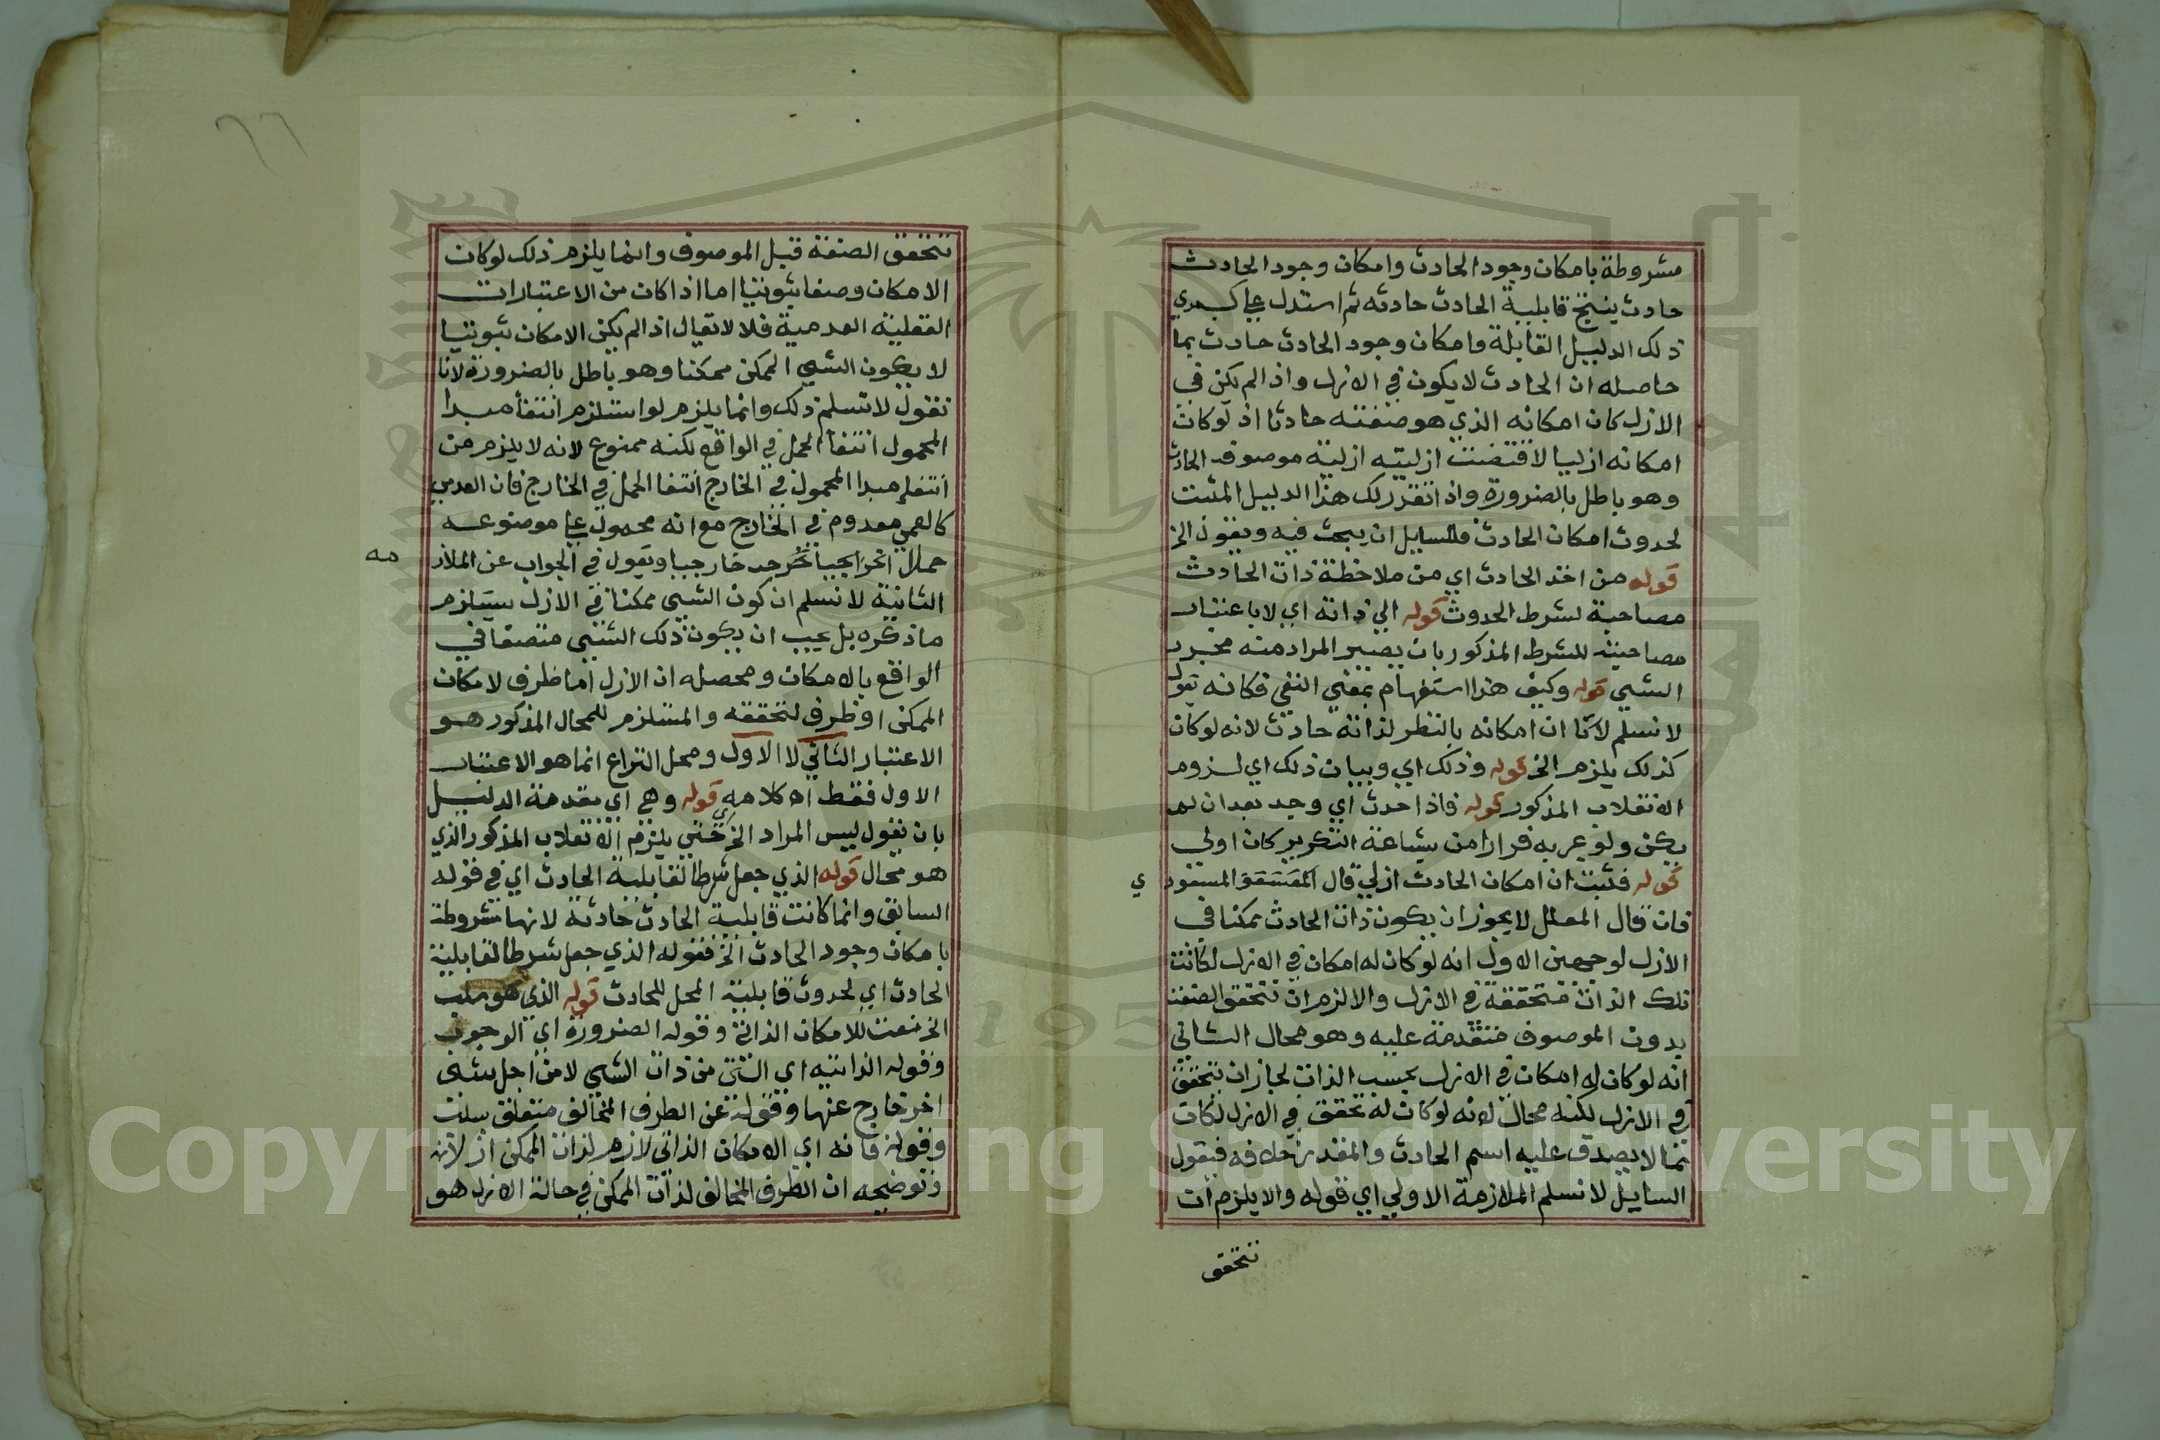 مشروطة بامكان وجود الحادث وامكان وجود الحادث
حادث ينتج قابلية الحادث حادثه ثم استدل على كبري
ذلك الدليل القابلة وامكان وجود الحادث حادث بما
حاصله ان الحادث لا يكون في الازل واذا لم يكن في
الازل كان امكانه الذي هو صفته حادثا اذ لو كان
امكانه ازليا لاقتضت ازليته ازلية موصوفه الحادث
وهو باطل بالضرورة واذا تقرر لك هذا الدليل المثبت
لحدوث امكان الحادث فللسايل ان يبحث فيه ويقول الخ
قوله من اخذ الحادث اي من ملاحظة ذات الحادث
مصاحبة لشرط الحدوث قوله الي ذاته اي لا باعتبار
مصاحبته للشرط المذكور بان يصير المراد منه مجرد
الشيي قوله وكيف هذا استفهام بمعني النفي فكانه يقول
لا نسلم لانا ان امكانه بالنظر لذاته حادث لانه لو كان
كذلك يلزم الخ قوله وذلك اي وبيان ذلك اي لزوم
الانقلاب المذكور قوله فاذا حدث اي وجد بعد ان لم
يكن ولو عبر به فرارا من بشاعة التكرير كان اولي
قوله فثبت ان امكان الحادث ازلي قال المسعود
ي
فان قال المعلل لا يجوز ان يكون ذات الحادث ممكنا في
الازل لوجهين الاول انه لو كان له امكان في الازل لكانت
تلك الذات متحققة في الازل والا لزم ان تتحقق الصفة
بدون الموصوف متقدمة عليه وهو محال الثاني
انه لو كان له امكان في الازل بحسب الذات لجاز ان يتحقق
في الازل لكنه محال لانه لو كان له تحقق في الازل لكان
مما لا يصدق عليه اسم الحادث والمقدر خلافه فيقول
السايل لا نسلم الملازمة الاولي اي قوله والا يلزم ان
تتحقق
٦٦
تتحقق الصفة قبل الموصوف وانما يلزم ذلك لو كان
الامكان وصفا ثبوتيا اما اذا كان من الاعتبارات
العقلية العدمية فلا لا يقال اذا لم يكن الامكان ثبوتيا
لا يكون الشيي الممكن ممكنا وهو باطل بالضرورة لانا
نقول لا نسلم ذلك وانما يلزم لو استلزم انتفأ مبدا
المحمول انتفأ الحمل في الواقع لكنه ممنوع لانه لا يلزم من
انتفاء مبدا المحمول في الخارج انتفا الحمل في الخارج فان العدمي
كالعمي معدوم في الخارج مع انه محمول على موضوعه
حملا خارجيا ويقول في الجواب عن الملاز
مه
الثانية لا نسلم ان كون الشيي ممكنا في الازل يستلزم
ما ذكره بل يجب ان يكون ذلك الشيي متصفا في
الواقع بالامكان ومحصله ان الازل اما ظرف لامكان
الممكن او ظرف لتحققه والمستلزم للمحال المذكور هو
الاعتبار الثاني لا الاول ومحل النزاع انما هو الاعتبار
الاول فقط اه كلامه قوله وهي اي مقدمة الدليل
بان يقول ليس المراد الخ حتي يلزم الانقلاب المذكور الذي
هو محال قوله الذي جعل شرطا لقابلية الحادث اي في قوله
السابق وانما كانت قابلية الحادث حادثة لانها مشروطة
بامكان وجود الحادث الخ فقوله الذي جعل شرطا لقابلية
الحادث اي لحدوث قابلية المحل للحادث قوله الذي هو سلب
الخ نعت للامكان الذاتي وقوله الضرورة اي الوجوب
وقوله الذاتيه اي التي من ذات الشيي لا من اجل شيي
اخر خارج عنها وقوله عن الطرف المخالف متعلق بسلب
وقوله فانه اي الامكان الذاتي لازم لذات الممكن ازلا
وتوضيحه ان الطرف المخالف لذات الممكن في حالة الازل هو
Copyright © King Saud University
1957